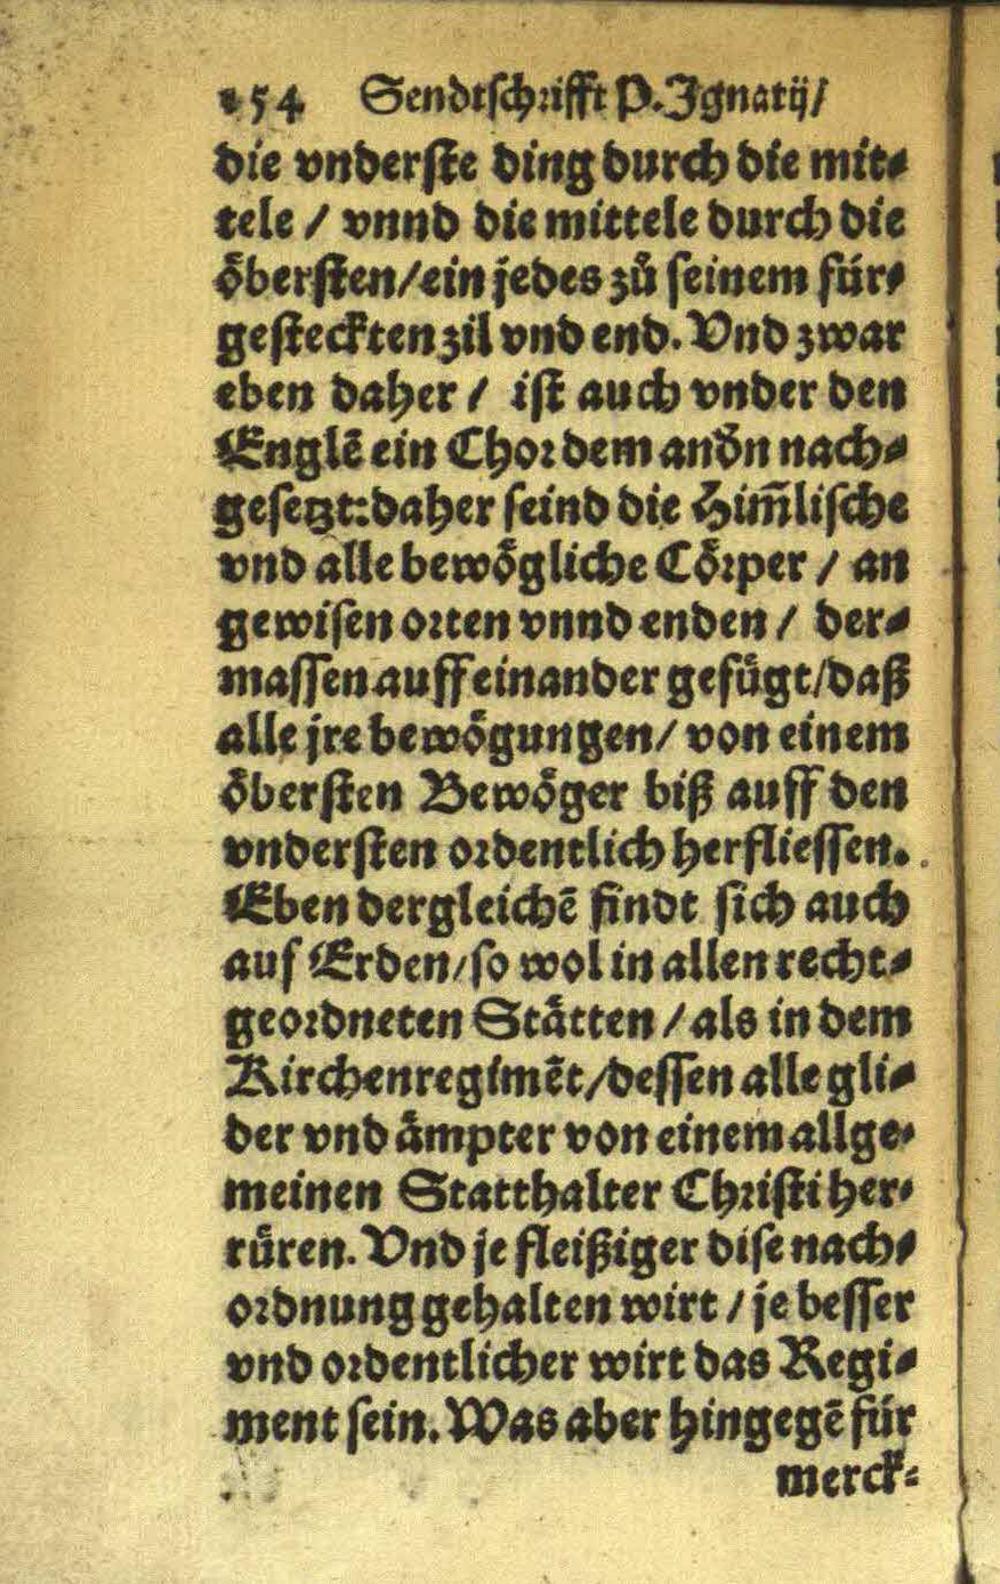 254 Sendtschrifft P. Ignatij/
die vnderste ding durch die mit⸗
tele / vnnd die mittele durch die
öbersten/ein jedes zů seinem für⸗
gesteckten zil vnd end. Vnd zwar
eben daher / ist auch vnder den
Englē ein Chor dem andn̄ nach⸗
gesetzt: daher seind die Him̄lische
vnd alle bewögliche Cörper / an
gewisen orten vnnd enden / der⸗
massen auff einander gefügt/daß
alle jre bewögungen/ von einem
öbersten Bewöger biß auff den
vndersten ordentlich herfliessen.
Eben dergleichē findt sich auch
auf Erden/so wol in allen recht⸗
geordneten Stätten / als in dem
Kirchenregimēt/dessen alle gli⸗
der vnd ämpter von einem allge⸗
meinen Statthalter Christi her⸗
rüren. Vnd je fleißiger dise nach⸗
ordnung gehalten wirt / je besser
vnd ordentlicher wirt das Regi⸗
ment sein. Was aber hingegē für
merck⸗